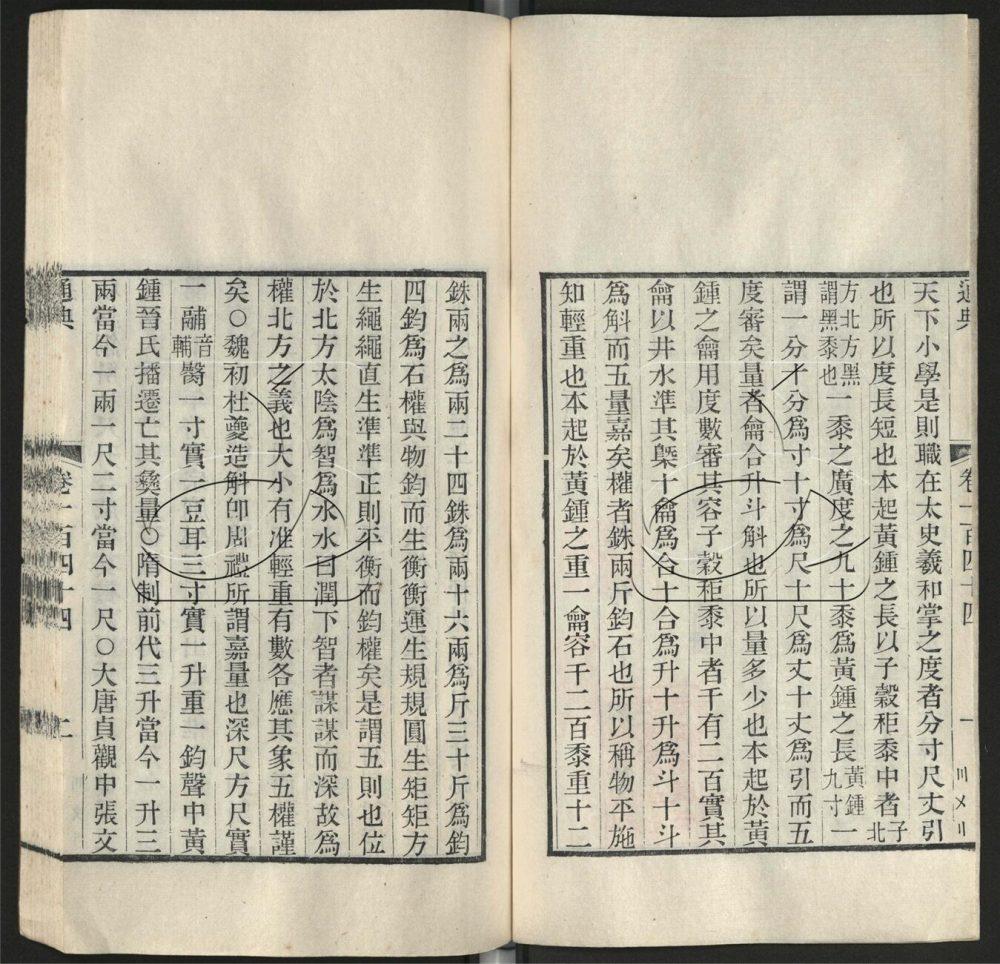 通典
卷一百四十四
一
天下小學是則職在太史羲和掌之度者分寸尺丈引
也所以度長短也本起黃鍾之長以子穀秬黍中者子北
方北方黑謂黑黍也一黍之廣度之九十黍為黃鍾之長黃鍾九寸一
謂一分十分為寸十寸為尺十尺為丈十丈為引而五
度審矣量者龠合升斗斛也所以量多少也本起於黃
鍾之龠用度數審其容子穀秬黍中者千有二百實其
龠以井水準其槩十龠為合十合為升十升為斗十斗
為斛而五量嘉矣權者銖兩斤鈞石也所以稱物平施
知輕重也本起於黃鍾之重一龠容千二百黍重十二
銖兩之為兩二十四銖為兩十六兩為斤三十斤為鈞
四鈞為石權與物鈞而生衡衡運生規規圓生矩矩方
生繩繩直生準準正則平衡而鈞權矣是謂五則也位
於北方太陰為智為水水曰潤下智者謀謀而深故為
權北方之義也大小有准輕重有數各應其象五權謹
矣○魏初杜夔造斛卽周禮所謂嘉量也深尺方尺實
一鬴音輔臀一寸實一豆耳三寸實一升重一鈞聲中黃
鍾晉氏播遷亡其彝量○隋制前代三升當今一升三
兩當今一兩一尺二寸當今一尺○大唐貞觀中張文
通典
卷一百四十四